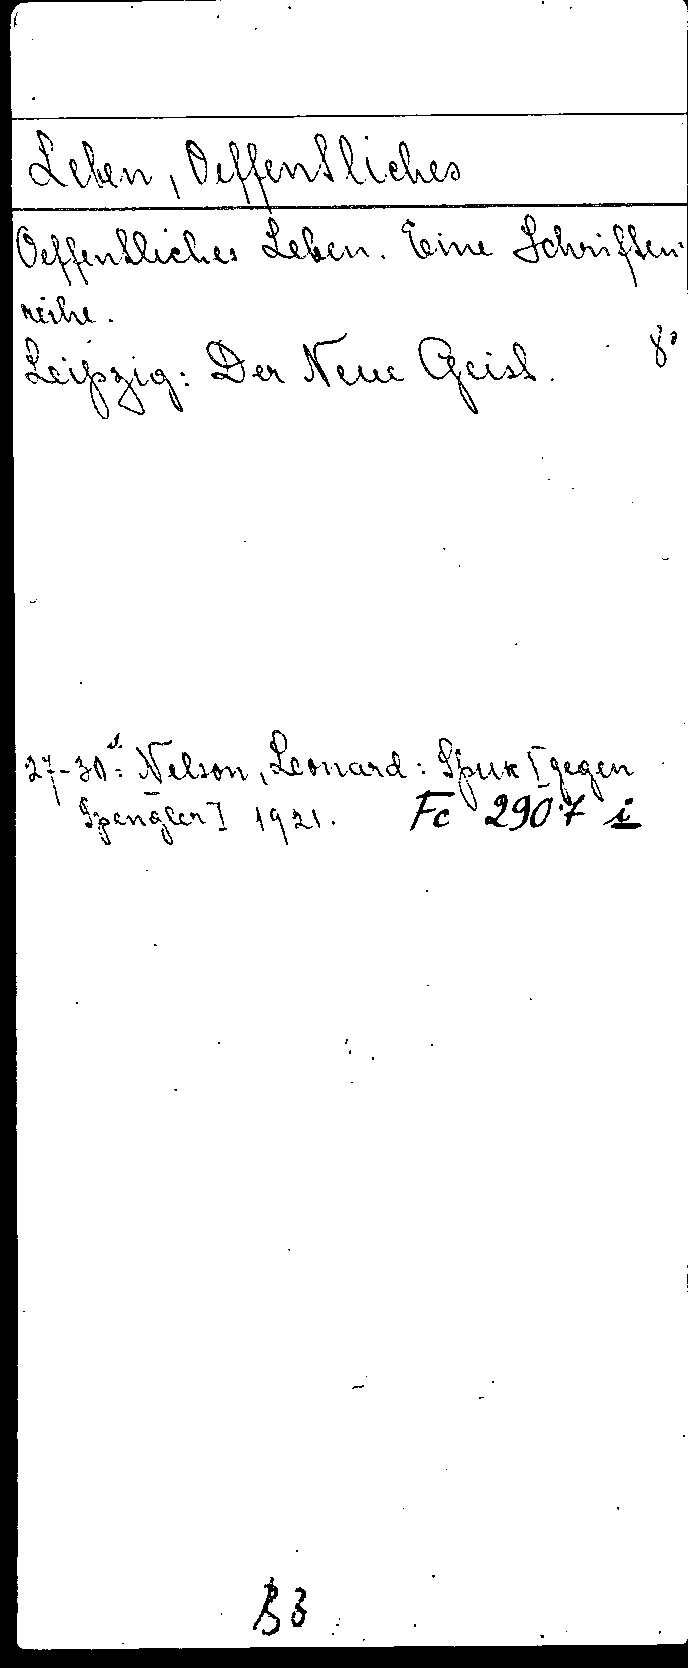 Leben, Oeffentliches
Oeffentliches Leben. Eine Schriften-
reihe.
Leipzig: Der Neue Geist. 8°
27-30: Nelson, Leonard: Spuk [gegen
Spengler] 1921. Fc 2907 i